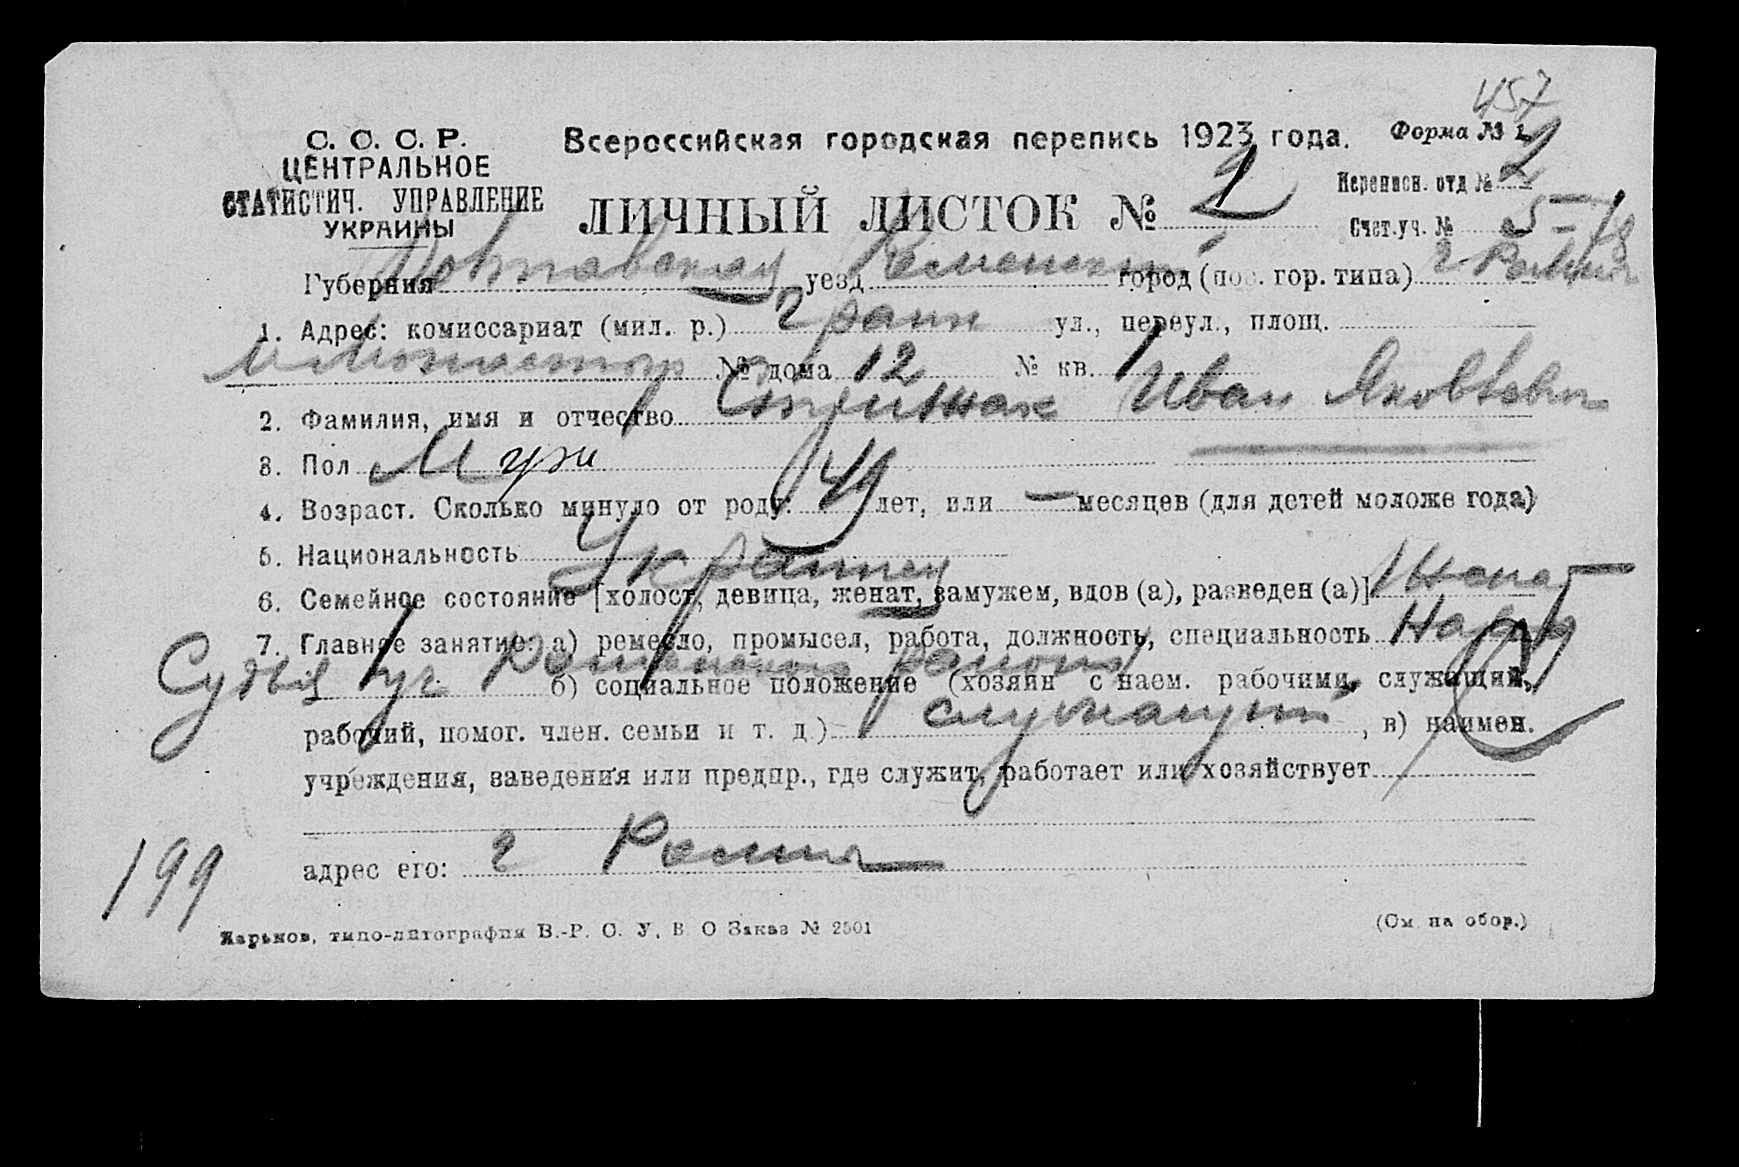 457
С. С. С. Р. Всероссийская городская перепись 1923 года. Форма № 1
ЦЕНТРАЛЬНОЕ
СТАТИСТИЧ. УПРАВЛЕНИЕ
УКРАИНЫ
ЛИЧНЫЙ ЛИСТОК № 2
Переписн. отд № 2
Счет.уч. № 5-
Губерния Полтавская уезд Роменский город (пос. гор. типа) г Ромны
1. Адрес: комиссариат (мил. р.) 2 район ул., переул., площ.
№ дома 12 № кв. 1
2. Фамилия, имя и отчество Стрижак Иван Яковлевич
3. Пол Муж
4. Возраст. Сколько минуло от роду: 49 лет, или — месяцев (для детей моложе года)
5. Национальность Украинец
6. Семейное состояние [холост, девица, женат, замужем, вдов (а), разведен (а)] Женат
7. Главное занятие: а) ремесло, промысел, работа, должность, специальность Народ
Судья 1 уч Роменского района б) социальное положение (хозяин с наем. рабочими, служащий,
рабочий, помог. член. семьи и т. д.) служащий, в) наимен.
учреждения, заведения или предпр., где служит, работает или хозяйствует
адрес его: г Ромны
199
Харьков, типо-литография В.-Р. С. У. В О Заказ № 2501 (См на обор.)